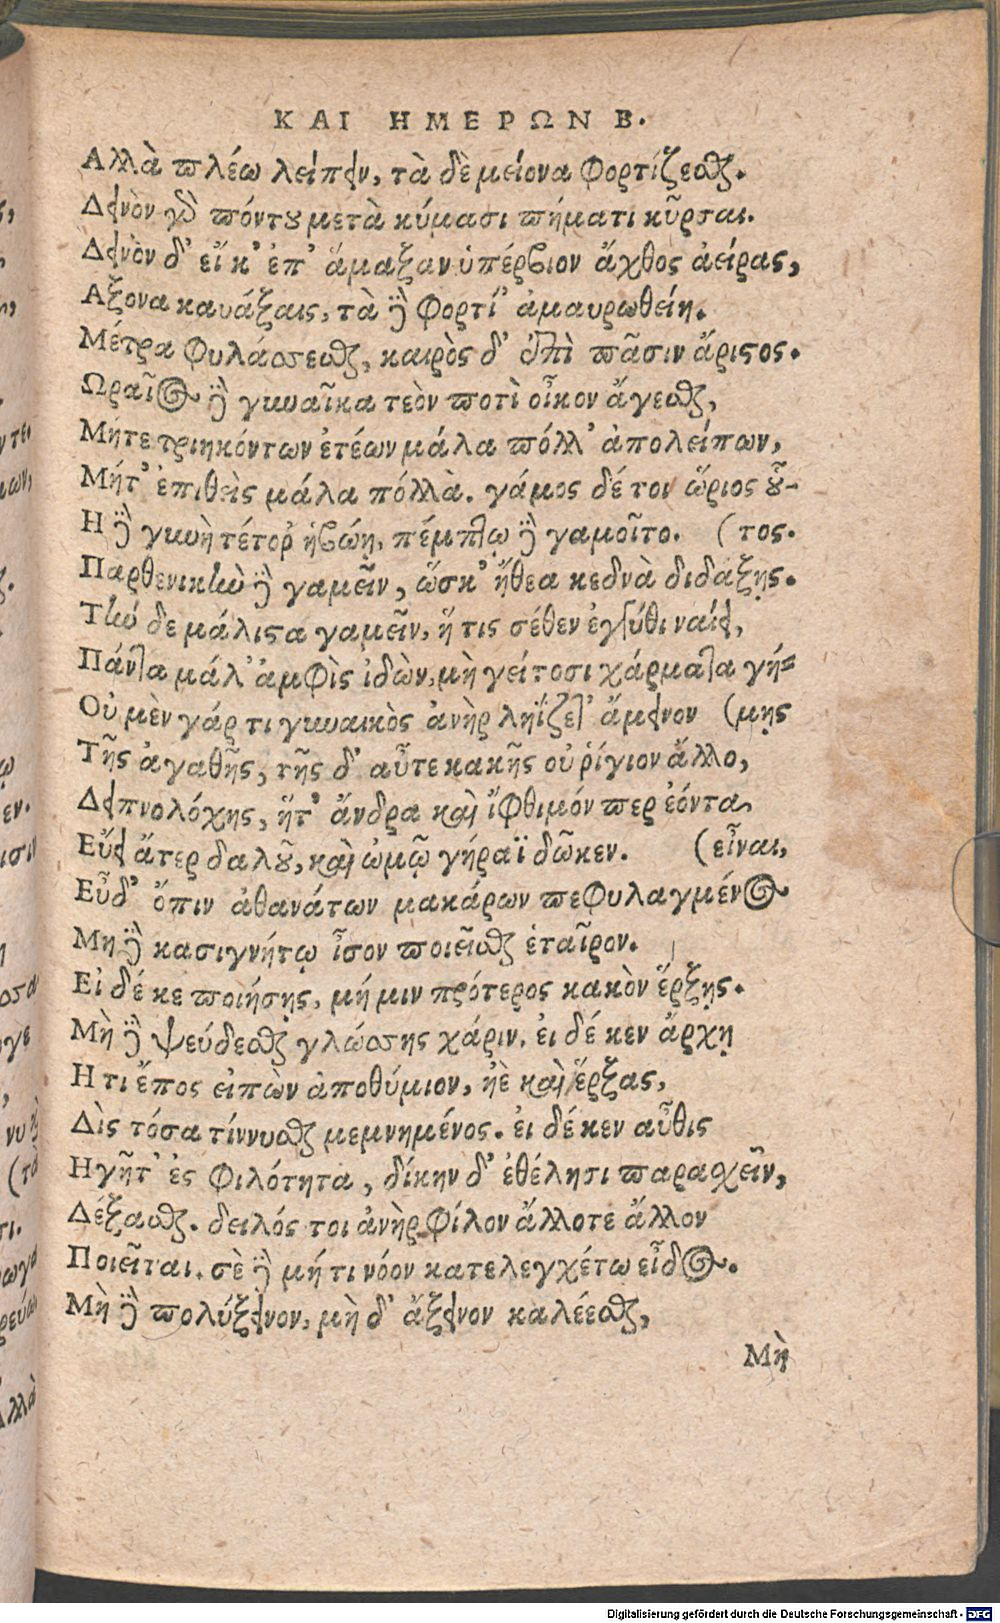 ΚΑΙ ΗΜΕΡΩΝ Β.
Αλλὰ πλέω λείπειν, τὰ δὲ μείονα φορτίζεσθαι.
Δεινὸν γὸ πόντου μετὰ κύμασι πήματι κῦρσαι.
Δεινὸν δ' εἴ κ' ἐπ' ἅμαξαν ὑπέρβιον ἄχθος ἀείρας,
Αξονα καυάξαις, τὰ δὲ φορτί' ἀμαυρωθείη.
Μέτρα φυλάσσεσθαι, καιρὸς δ' ἐπὶ πᾶσιν ἄριστος.
Ωραῖος δὲ γυναῖκα τεὸν ποτὶ οἶκον ἄγεσθαι,
Μήτε τριηκόντων ἐτέων μάλα πόλλ' ἀπολείπων,
Μήτ' ἐπιθεὶς μάλα πόλλὰ. γάμος δέ τοι ὥριος οὗ-
Η δὲ γυνὴ τέτορ ἡβώῃ, πέμπτῳ δὲ γαμοῖτο. (τος.
Παρθενικὴν δὲ γαμεῖν, ὥσκ' ἤθεα κεδνὰ διδάξῃς.
Τὴν δε μάλιστα γαμεῖν, ἥ τις σέθεν ἐγγύθι ναίει,
Πάντα μάλ' ἀμφὶς ἰδὼν, μὴ γείτοσι χάρματα γή-
Οὐ μὲν γάρ τι γυναικὸς ἀνὴρ ληΐζετ' ἄμεινον (μῃς
Τῆς ἀγαθῆς, τῆς δ' αὖτε κακῆς οὐ ῥίγιον ἄλλο,
Δειπνολόχης, ἥτ' ἄνδρα καὶ ἴφθιμόν περ ἐόντα
Εὕει ἄτερ δαλοῦ, καὶ ὠμῷ γήραϊ δῶκεν. (εἶναι,
Εὖδ' ὄπιν ἀθανάτων μακάρων πεφυλαγμένος
Μη δὲ κασιγνήτῳ ἶσον ποιεῖσθαι ἑταῖρον.
Εἰ δέ κε ποιήσῃς, μή μιν πρότερος κακὸν ἕρξῃς.
Μὴ δὲ ψεύδεσθαι γλώσσης χάριν. εἰ δέ κεν ἄρχῃ
Η τι ἔπος εἰπὼν ἀποθύμιον, ἠὲ καὶ ἕρξας,
Δὶς τόσα τίννυσθαι μεμνημένος. εἰ δέ κεν αὖθις
Ηγῆτ' ἐς φιλότητα, δίκην δ' ἐθέλησι παρασχεῖν,
Δέξασθαι. δειλός τοι ἀνὴρ φίλον ἄλλοτε ἄλλον
Ποιεῖται. σὲ δὲ μή τι νόον κατελεγχέτω εἶδος.
Μὴ δὲ πολύξεινον, μὴ δ' ἄξεινον καλέεσθαι,
Μὴ
Digitalisierung gefördert durch die Deutsche Forschungsgemeinschaft - DFG